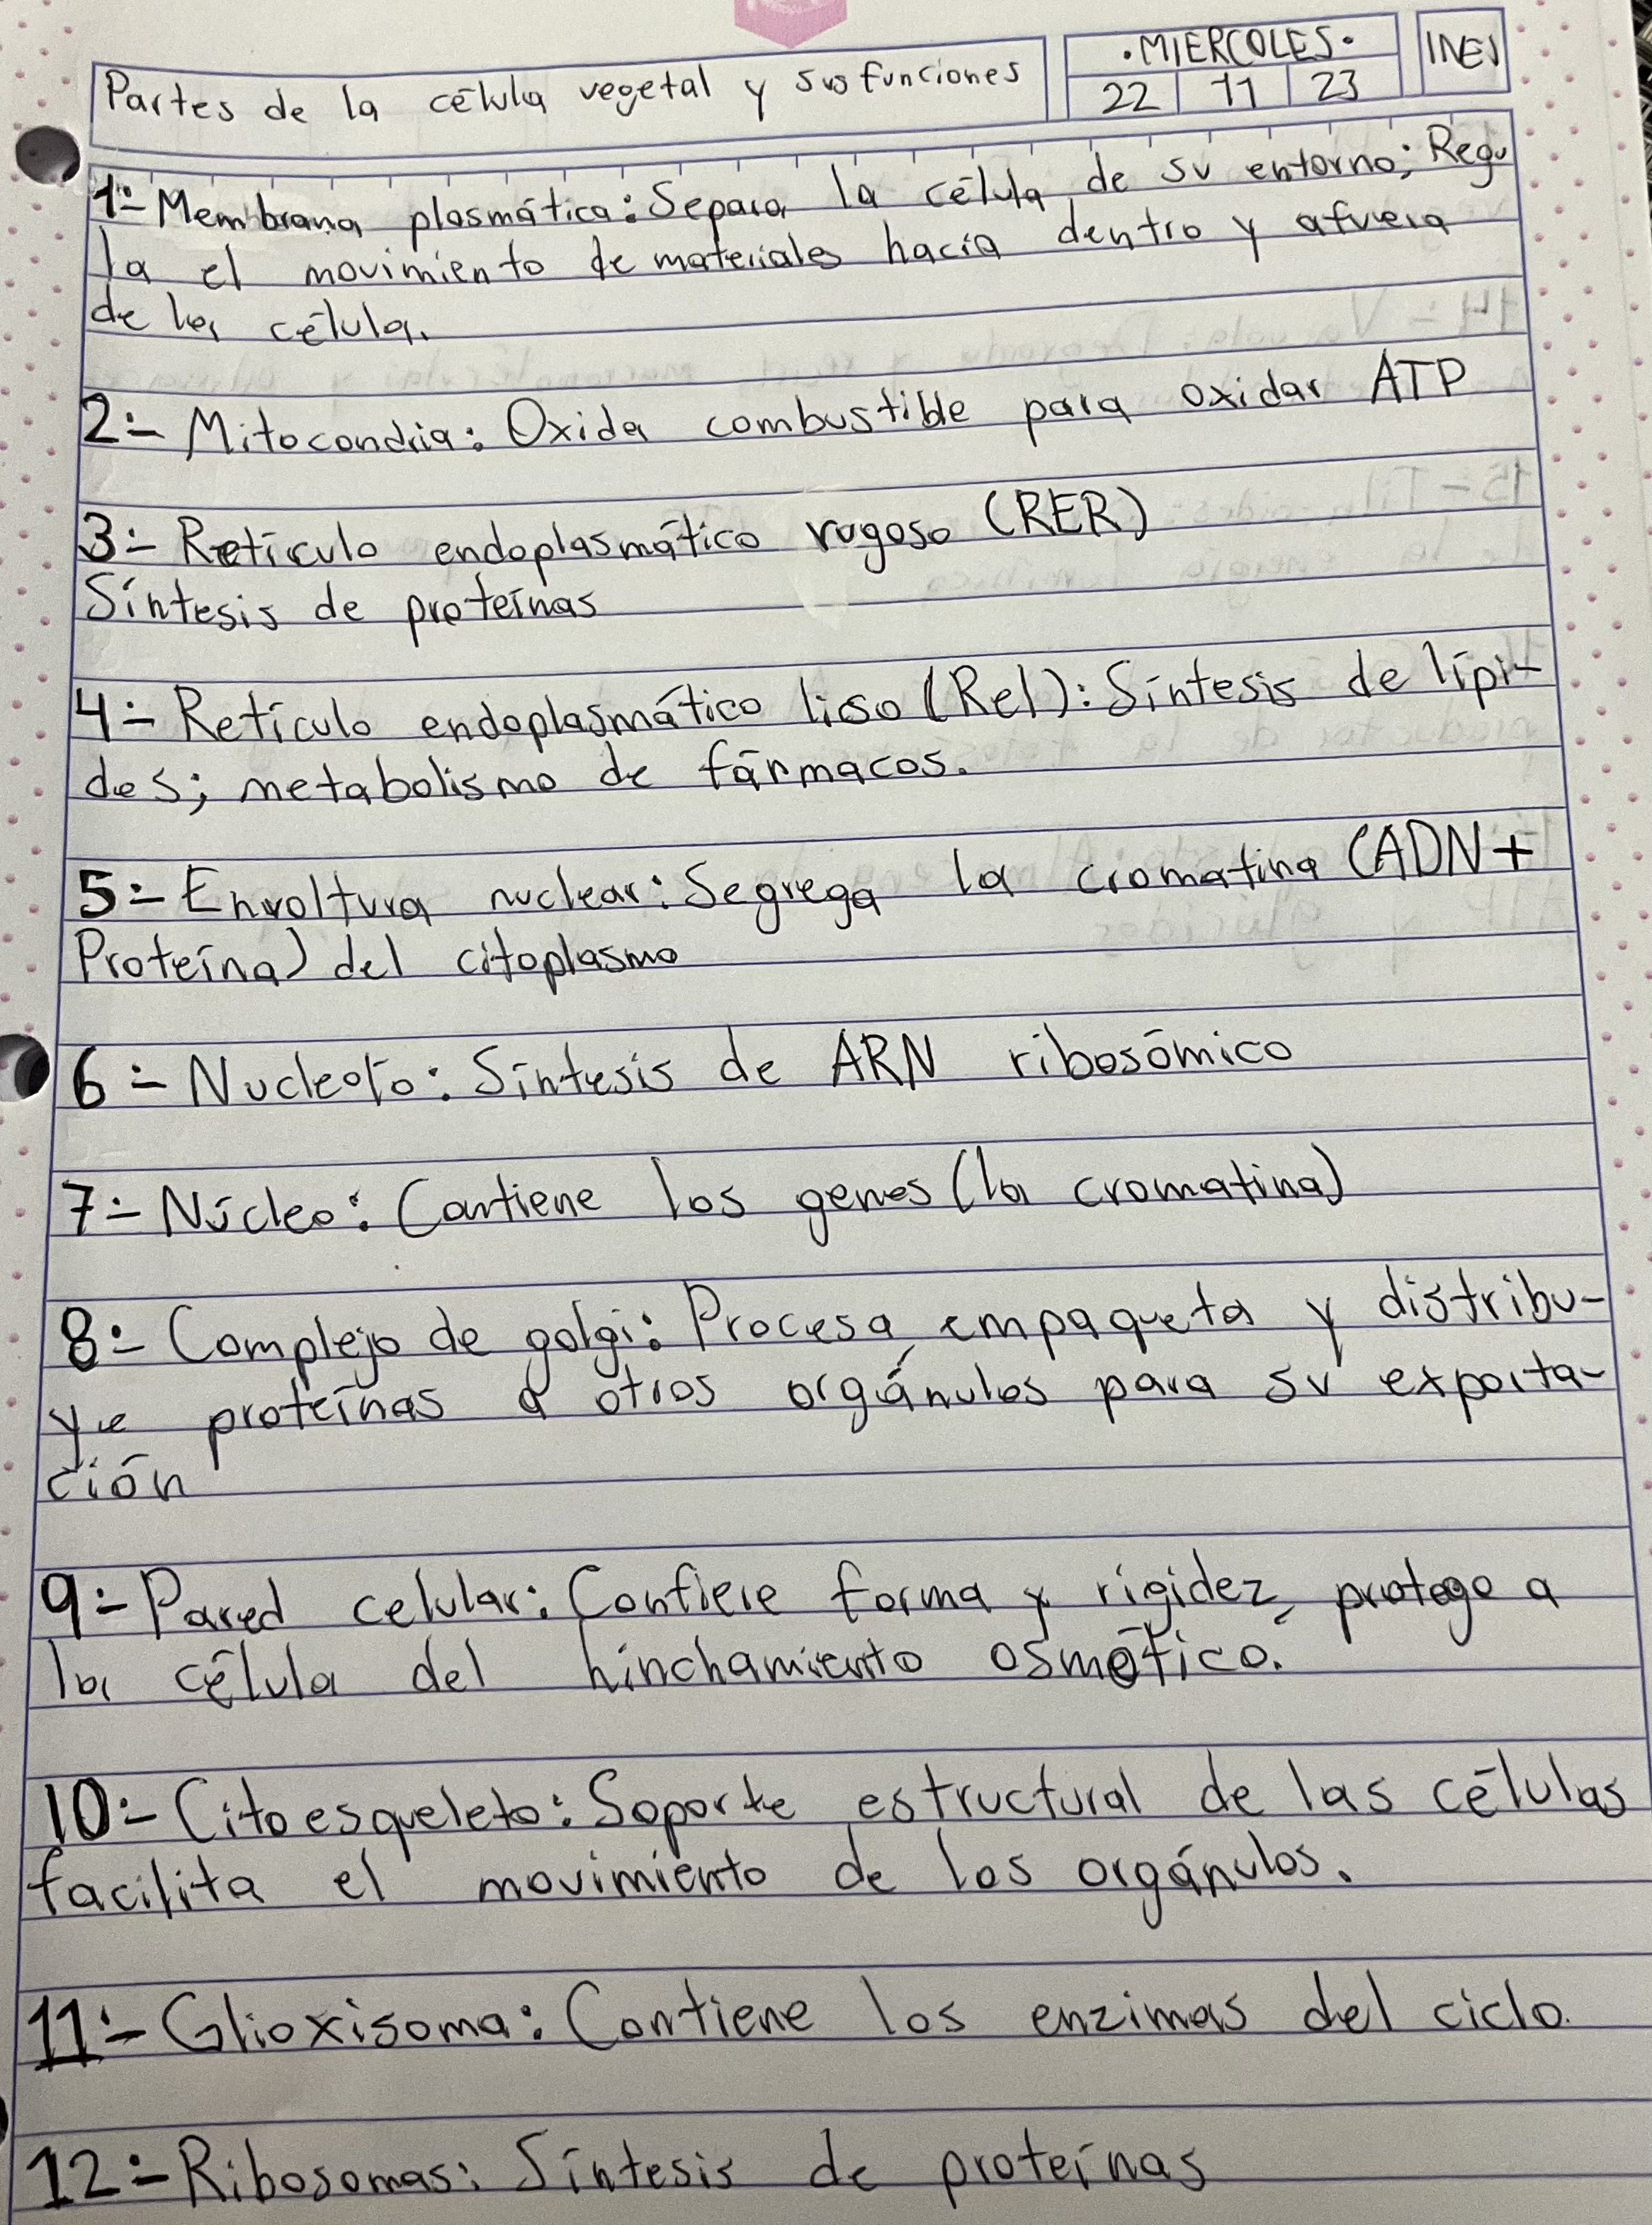 Partes de la célula vegetal y sus funciones
·MIERCOLES·
22 11 23
INES
1:- Membrana plasmática: Separa la célula de su entorno; Regu
la el movimiento de materiales hacía dentro y afuera
de la célula.
2:- Mitocondria: Oxida combustible para oxidar ATP
3:- Retículo endoplasmático rugoso (RER)
Síntesis de proteínas
4:- Retículo endoplasmático liso (Rel): Síntesis de lípi-
dos; metabolismo de fármacos.
5:- Envoltura nuclear: Segrega la cromatina (ADN+
Proteína) del citoplasmo
6:- Nucleolo: Síntesis de ARN ribosómico
7:- Núcleo: Contiene los genes (la cromatina)
8:- Complejo de golgi: Procesa, empaqueta y distribu-
ye proteínas a otros orgánulos para su exporta-
ción
9:- Pared celular: Confiere forma y rigidez, protege a
la célula del hinchamiento osmótico.
10:- Citoesqueleto: Soporte estructural de las células
facilita el movimiento de los orgánulos.
11:- Glioxisoma: Contiene los enzimas del ciclo.
12:- Ribosomas: Síntesis de proteínas